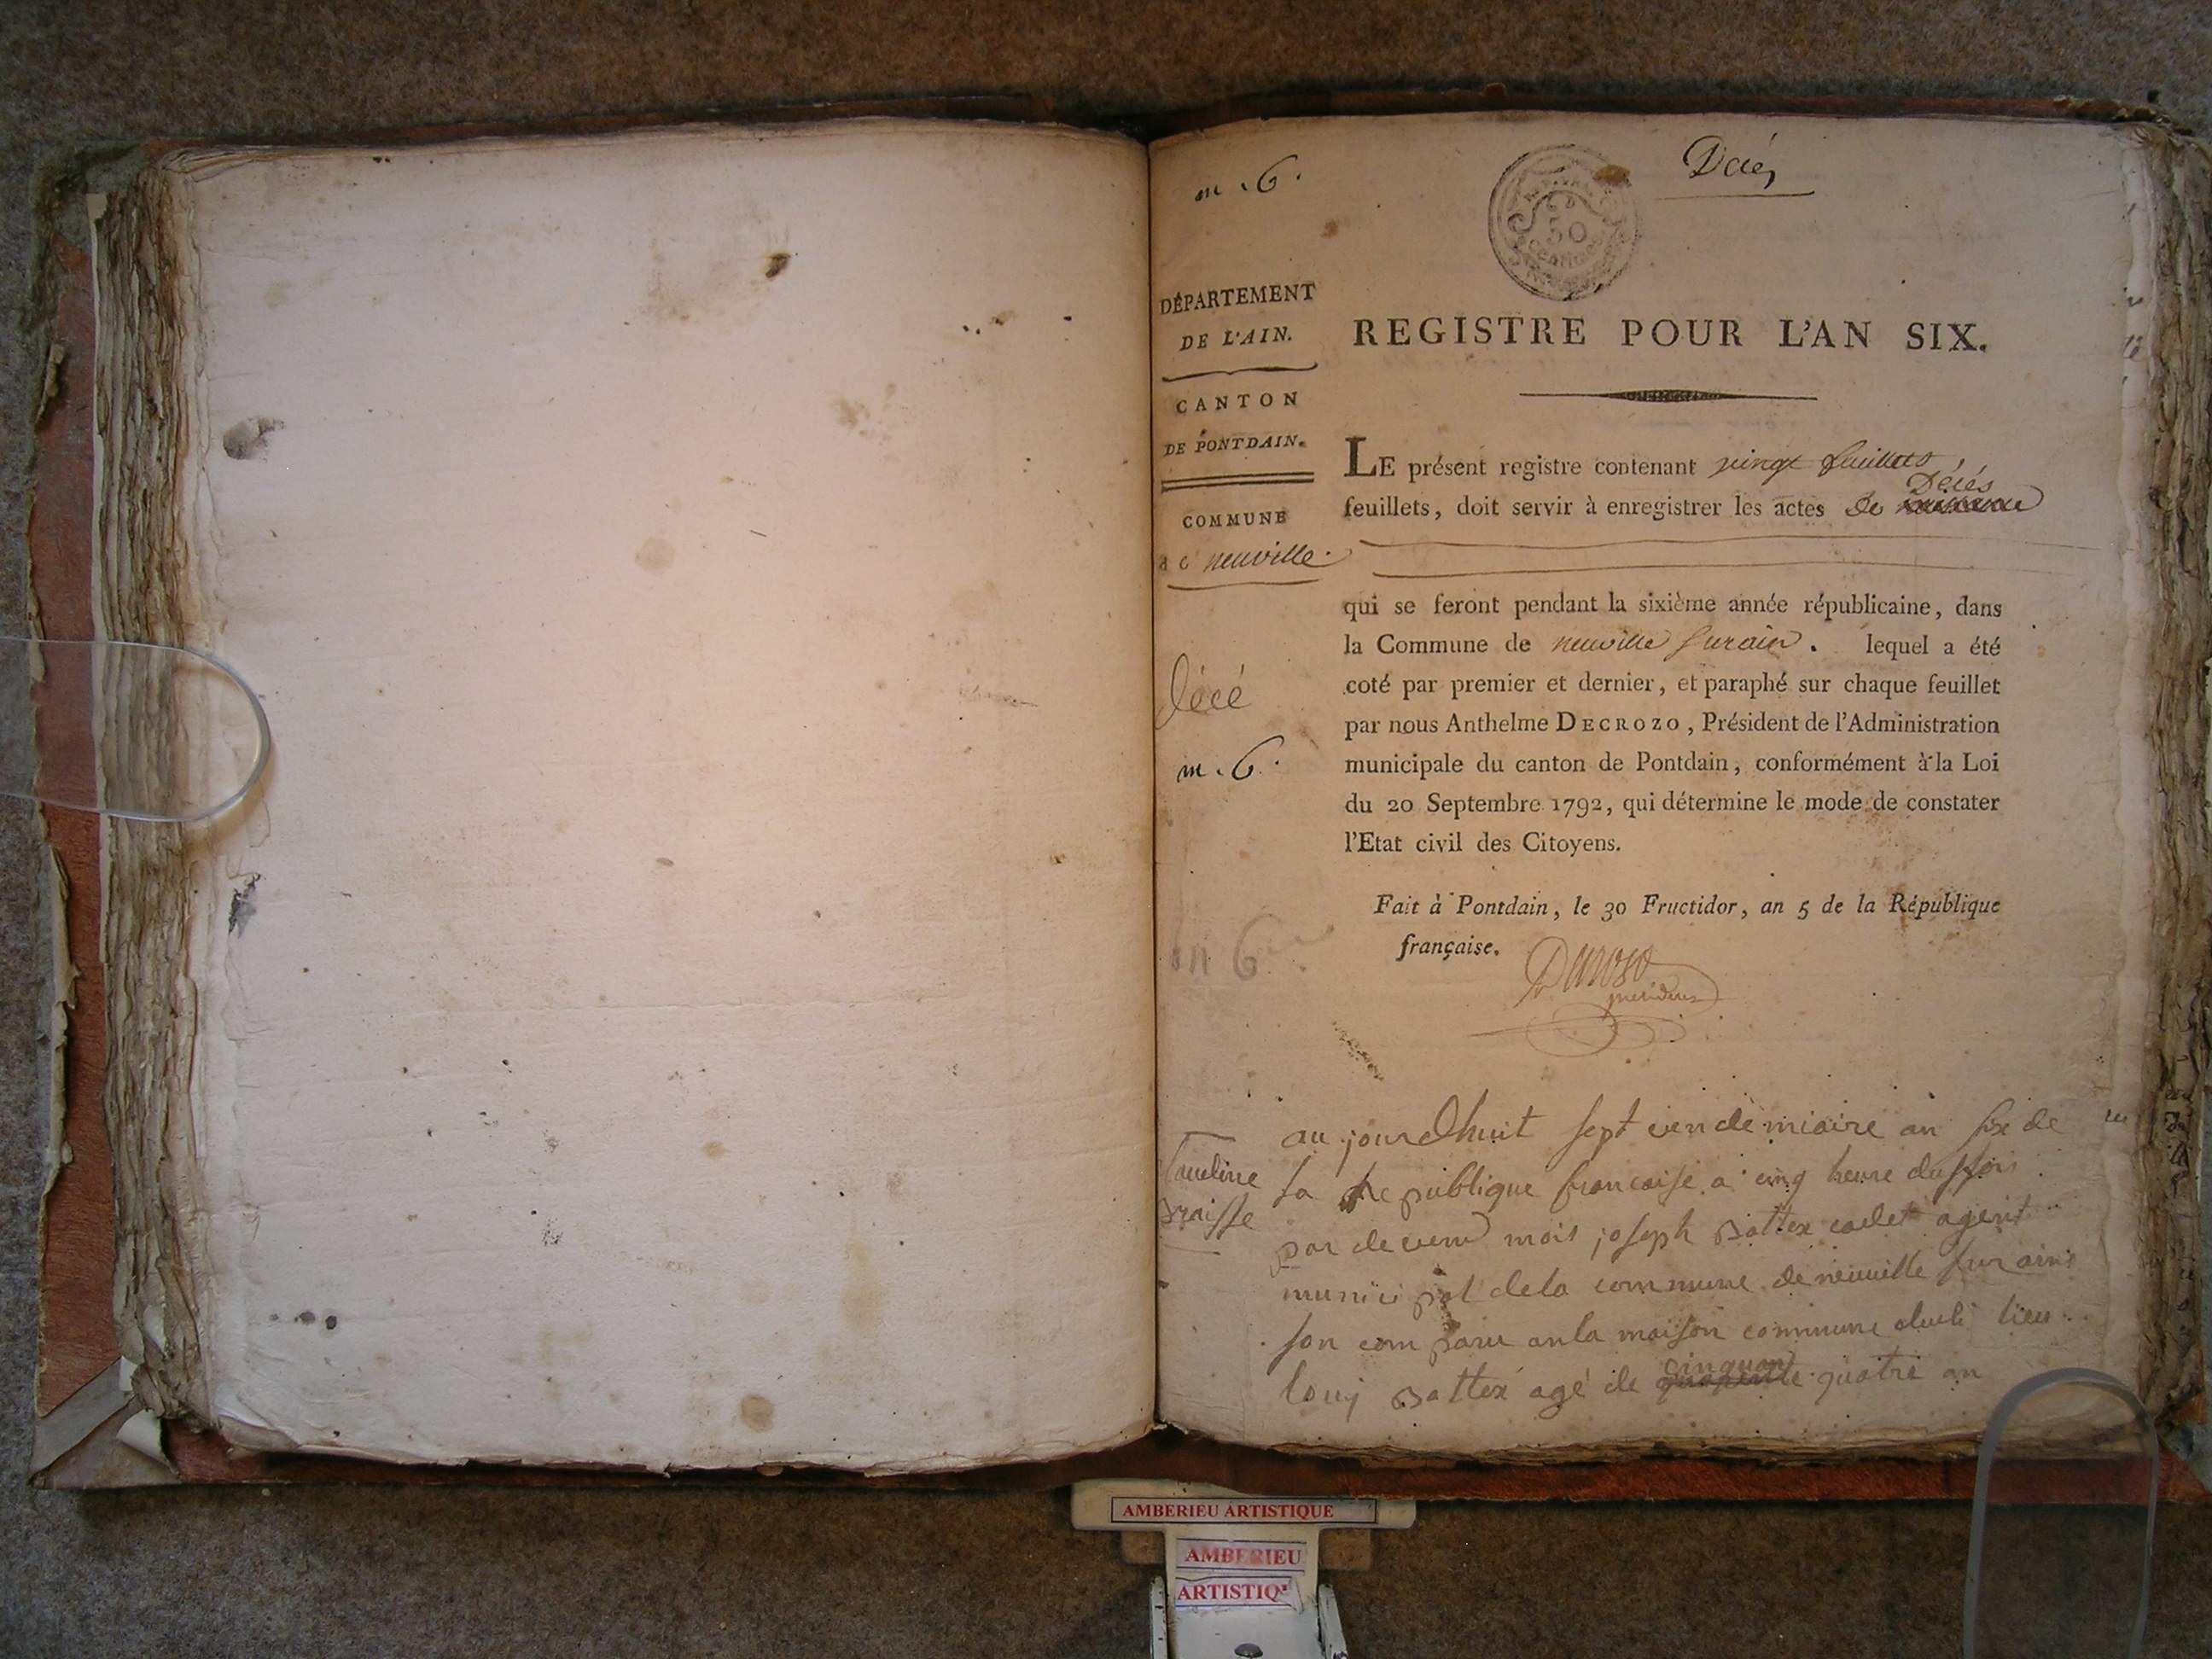 m. 6.
Décés
50
Centimes
DÉPARTEMENT
DE L'AIN.
CANTON
DE PONTDAIN.
COMMUNE
de neuville.
décé
m. 6.
m 6
REGISTRE POUR L'AN SIX.
LE présent registre contenant vingt feuillets,
Décés
feuillets, doit servir à enregistrer les actes de naissance
qui se feront pendant la sixième année républicaine, dans
la Commune de neuville sur ain. lequel a été
coté par premier et dernier, et paraphé sur chaque feuillet
par nous Anthelme DECROZO, Président de l'Administration
municipale du canton de Pontdain, conformément à la Loi
du 20 Septembre 1792, qui détermine le mode de constater
l'Etat civil des Citoyens.
Fait à Pontdain, le 30 Fructidor, an 5 de la République
française.
Decrozo
president
au jourdhuit sept vendemiaire an six de
la Republique francaise a cinq heure du soir
par devend mois joseph Battex cadet agent
municipal dela commune de neuville sur ains
son comparu anla maison commune dudi lieu
cinquan
louis Battex agé de quarente quatre an
AMBERIEU ARTISTIQUE
AMBERIEU
ARTISTIQ